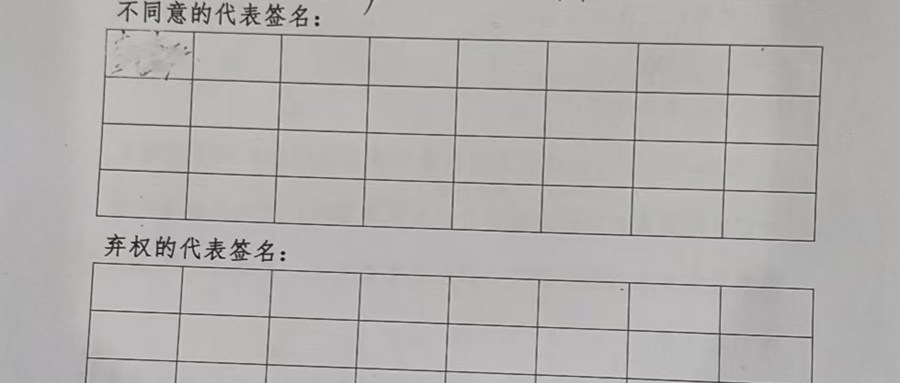 不同意的代表签名：
弃权的代表签名：